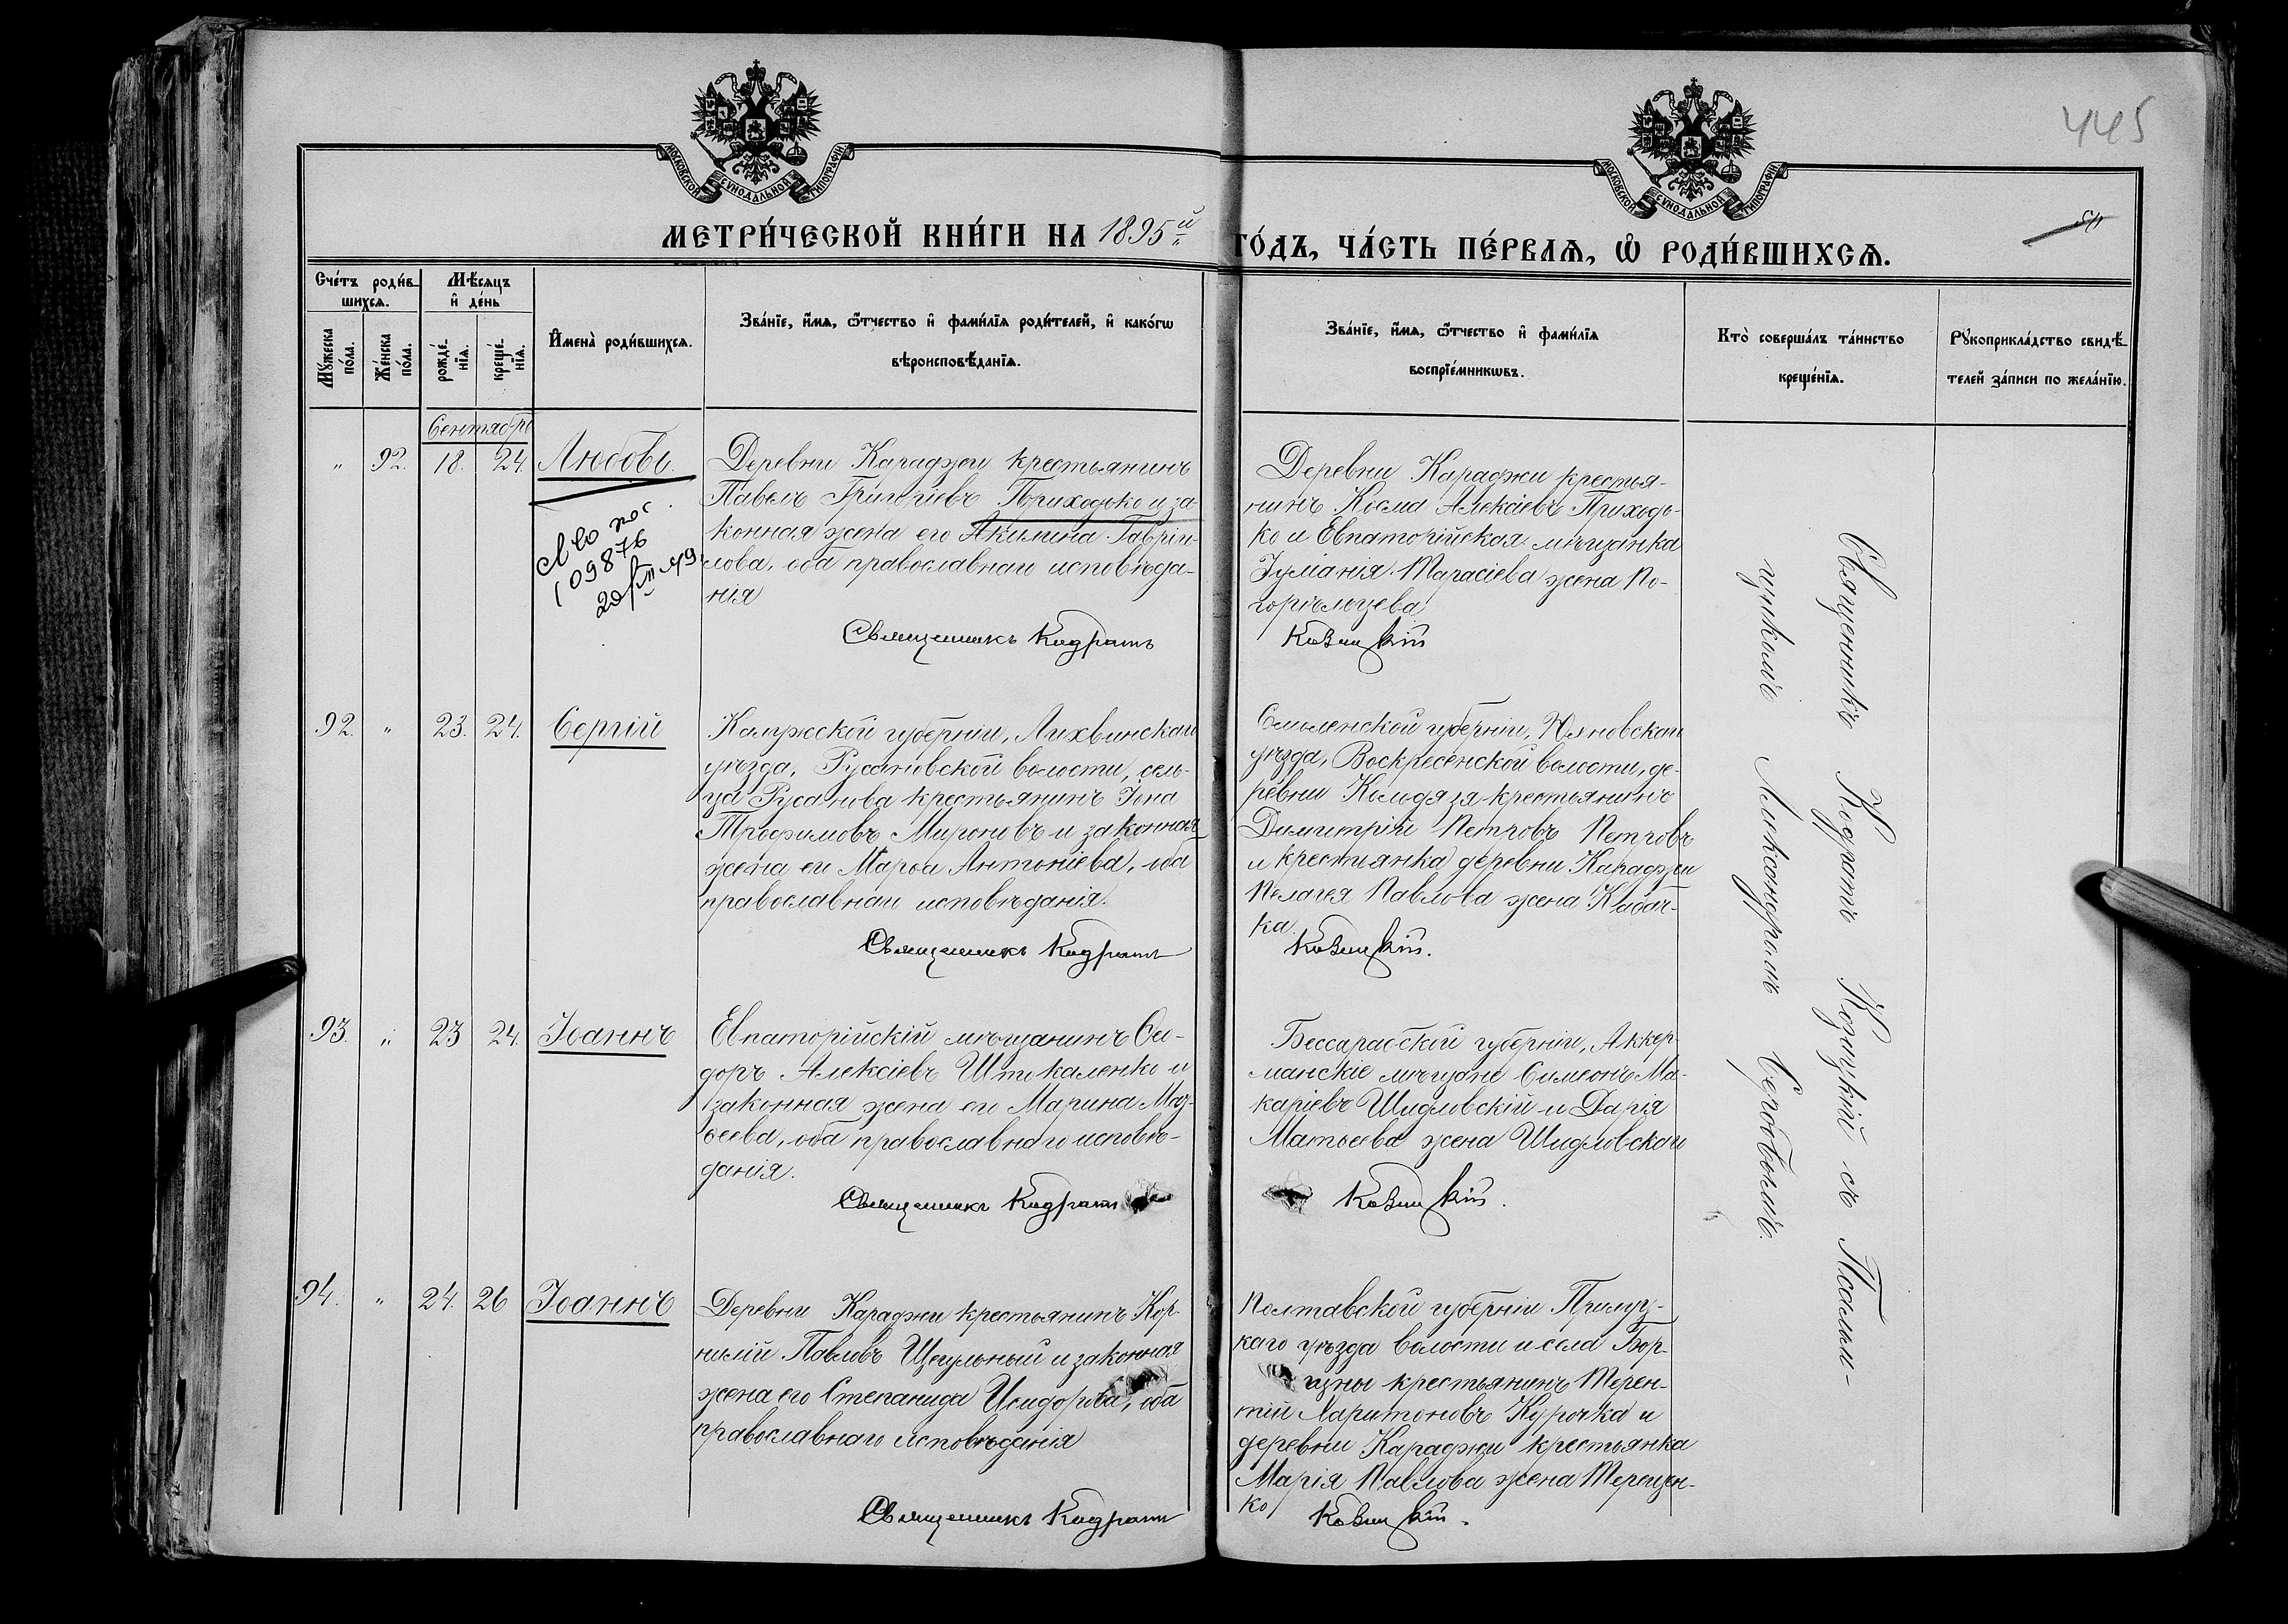 МОСКОВСКОЙ СѴНОДАЛЬНОЙ ТИПОГРАФІИ
МОСКОВСКОЙ СѴНОДАЛЬНОЙ ТИПОГРАФІИ
445
МЕТРИ́ЧЕСКОЙ КНИ́ГИ НА 1895й
ГО́ДЪ, ЧА́СТЬ ПЕ́РВАѦ, Ѡ҆ РОДИ́ВШИХСѦ.
Сче́тъ роди́в-
шихсѧ.
Мꙋ́жеска по́ла.
Же́нска по́ла.
Мѣ́сѧцъ
и҆ де́нь
рожде́-
нїѧ.
креще́-
нїѧ.
И҆мена̀ роди́вшихсѧ.
Зва́нїе, и҆́мѧ, ѻ҆́тчество и҆ фами́лїѧ роди́телей, и҆ како́гѡ
вѣроисповѣ́данїѧ.
Зва́нїе, и҆́мѧ, ѻ҆́тчество и҆ фами́лїѧ
воспрїе́мникѡвъ.
Кто̀ соверша́лъ та́инство
креще́нїѧ.
Рꙋкоприкла́дство свидѣ́-
телей за́писи по жела́нїю.
Сентябрь
" 92. 18. 24. Любовь.
Деревни Караджи крестьянинъ
Павелъ Григорiевъ Приходько и за-
конная жена его Акилина Гаврiи-
лова, оба православнаго исповѣда-
нiя
Священникъ Кодратъ
109876
Деревни Караджи крестья-
нинъ Косма Алексiевъ Приходь-
ко и Евпаторiйская мѣщанка
Iулiанiя Тарасiева жена По-
горѣльцева
Ковицкiй
92. " 23. 24. Сергiй
Калужской губернiи, Лихвинскаго
уѣзда, Русановской волости, сель-
ца Русанова крестьянинъ Iона
Трофимовъ Мироновъ и законная
жена его Марѳа Антонiева, оба
православнаго исповѣданiя.
Священникъ Кодратъ
Смоленской губернiи, Юхновскаго
уѣзда, Воскресенской волости, де-
ревни Колодязя крестьянинъ
Димитрiй Петровъ Петровъ
и крестьянка деревни Караджи
Пелагея Павлова жена Кабач-
ка.
Ковицкiй.
93. " 23 24. Iоаннъ
Евпаторiйскiй мѣщанинъ Си-
доръ Алексiевъ Штокаленко и
законная жена его Марина Мат-
ѳеева, оба православнаго исповѣ-
данiя.
Священникъ Кодратъ
Бессарабской губернiи, Аккер-
манскiе мѣщане Симеонъ Ма-
карiевъ Шидловскiй и Дарiя
Матѳеева жена Шидловскаго
Ковицкiй.
94. " 24. 26 Iоаннъ
Деревни Караджи крестьянинъ Кор-
нилiй Павловъ Щегульный и законная
жена его Степанида Исидорова, оба
православнаго исповѣданiя
Священникъ Кодратъ
Полтавской губернiи Прилуц-
каго уѣзда волости и села Бор-
изны крестьянинъ Терен-
тiй Харитоновъ Курочка и
деревни Караджи крестьянка
Марiя Павлова жена Терещен-
ко
Ковицкiй.
Священникъ Кодратъ Ковицкiй съ Псалом-
щикомъ Александромъ Сербовымъ.